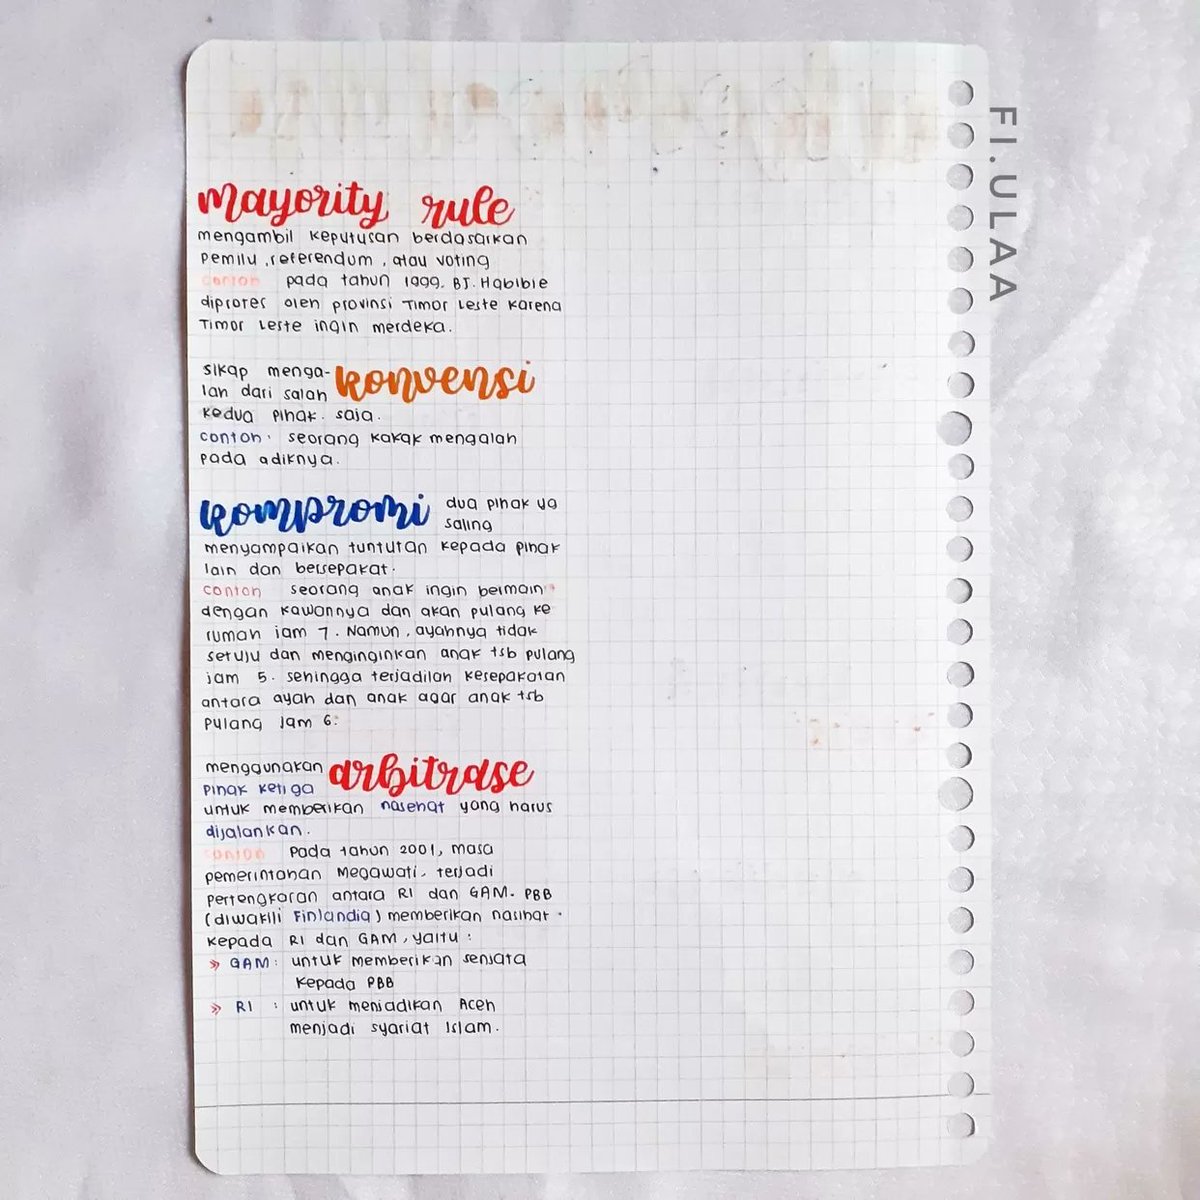 mayority rule
mengambil keputusan berdasarkan
pemilu, referendum, atau voting
contoh pada tahun 1999. BJ. Habibie
diprotes oleh provinsi Timor Leste karena
Timor Leste ingin merdeka.
sikap menga-
lah dari salah
konvensi
kedua pihak. saja.
contoh. seorang kakak mengalah
pada adiknya.
kompromi
dua pihak yg
saling
menyampaikan tuntutan kepada pihak
lain dan bersepakat.
contoh seorang anak ingin bermain
dengan kawannya dan akan pulang ke
rumah jam 7. Namun, ayahnya tidak
setuju dan menginginkan anak tsb pulang
jam 5. sehingga terjadilah kesepakatan
antara ayah dan anak agar anak tsb
pulang jam 6.
menggunakan
pihak ketiga
arbitrase
untuk memberikan nasehat yang harus
dijalankan.
contoh Pada tahun 2001, masa
pemerintahan Megawati. terjadi
pertengkaran antara RI dan GAM. PBB
(diwakili Finlandia) memberikan nasihat.
kepada RI dan GAM, yaitu :
» GAM : untuk memberikan senjata
kepada PBB
» RI : untuk menjadikan Aceh
menjadi syariat Islam.
FI.ULAA